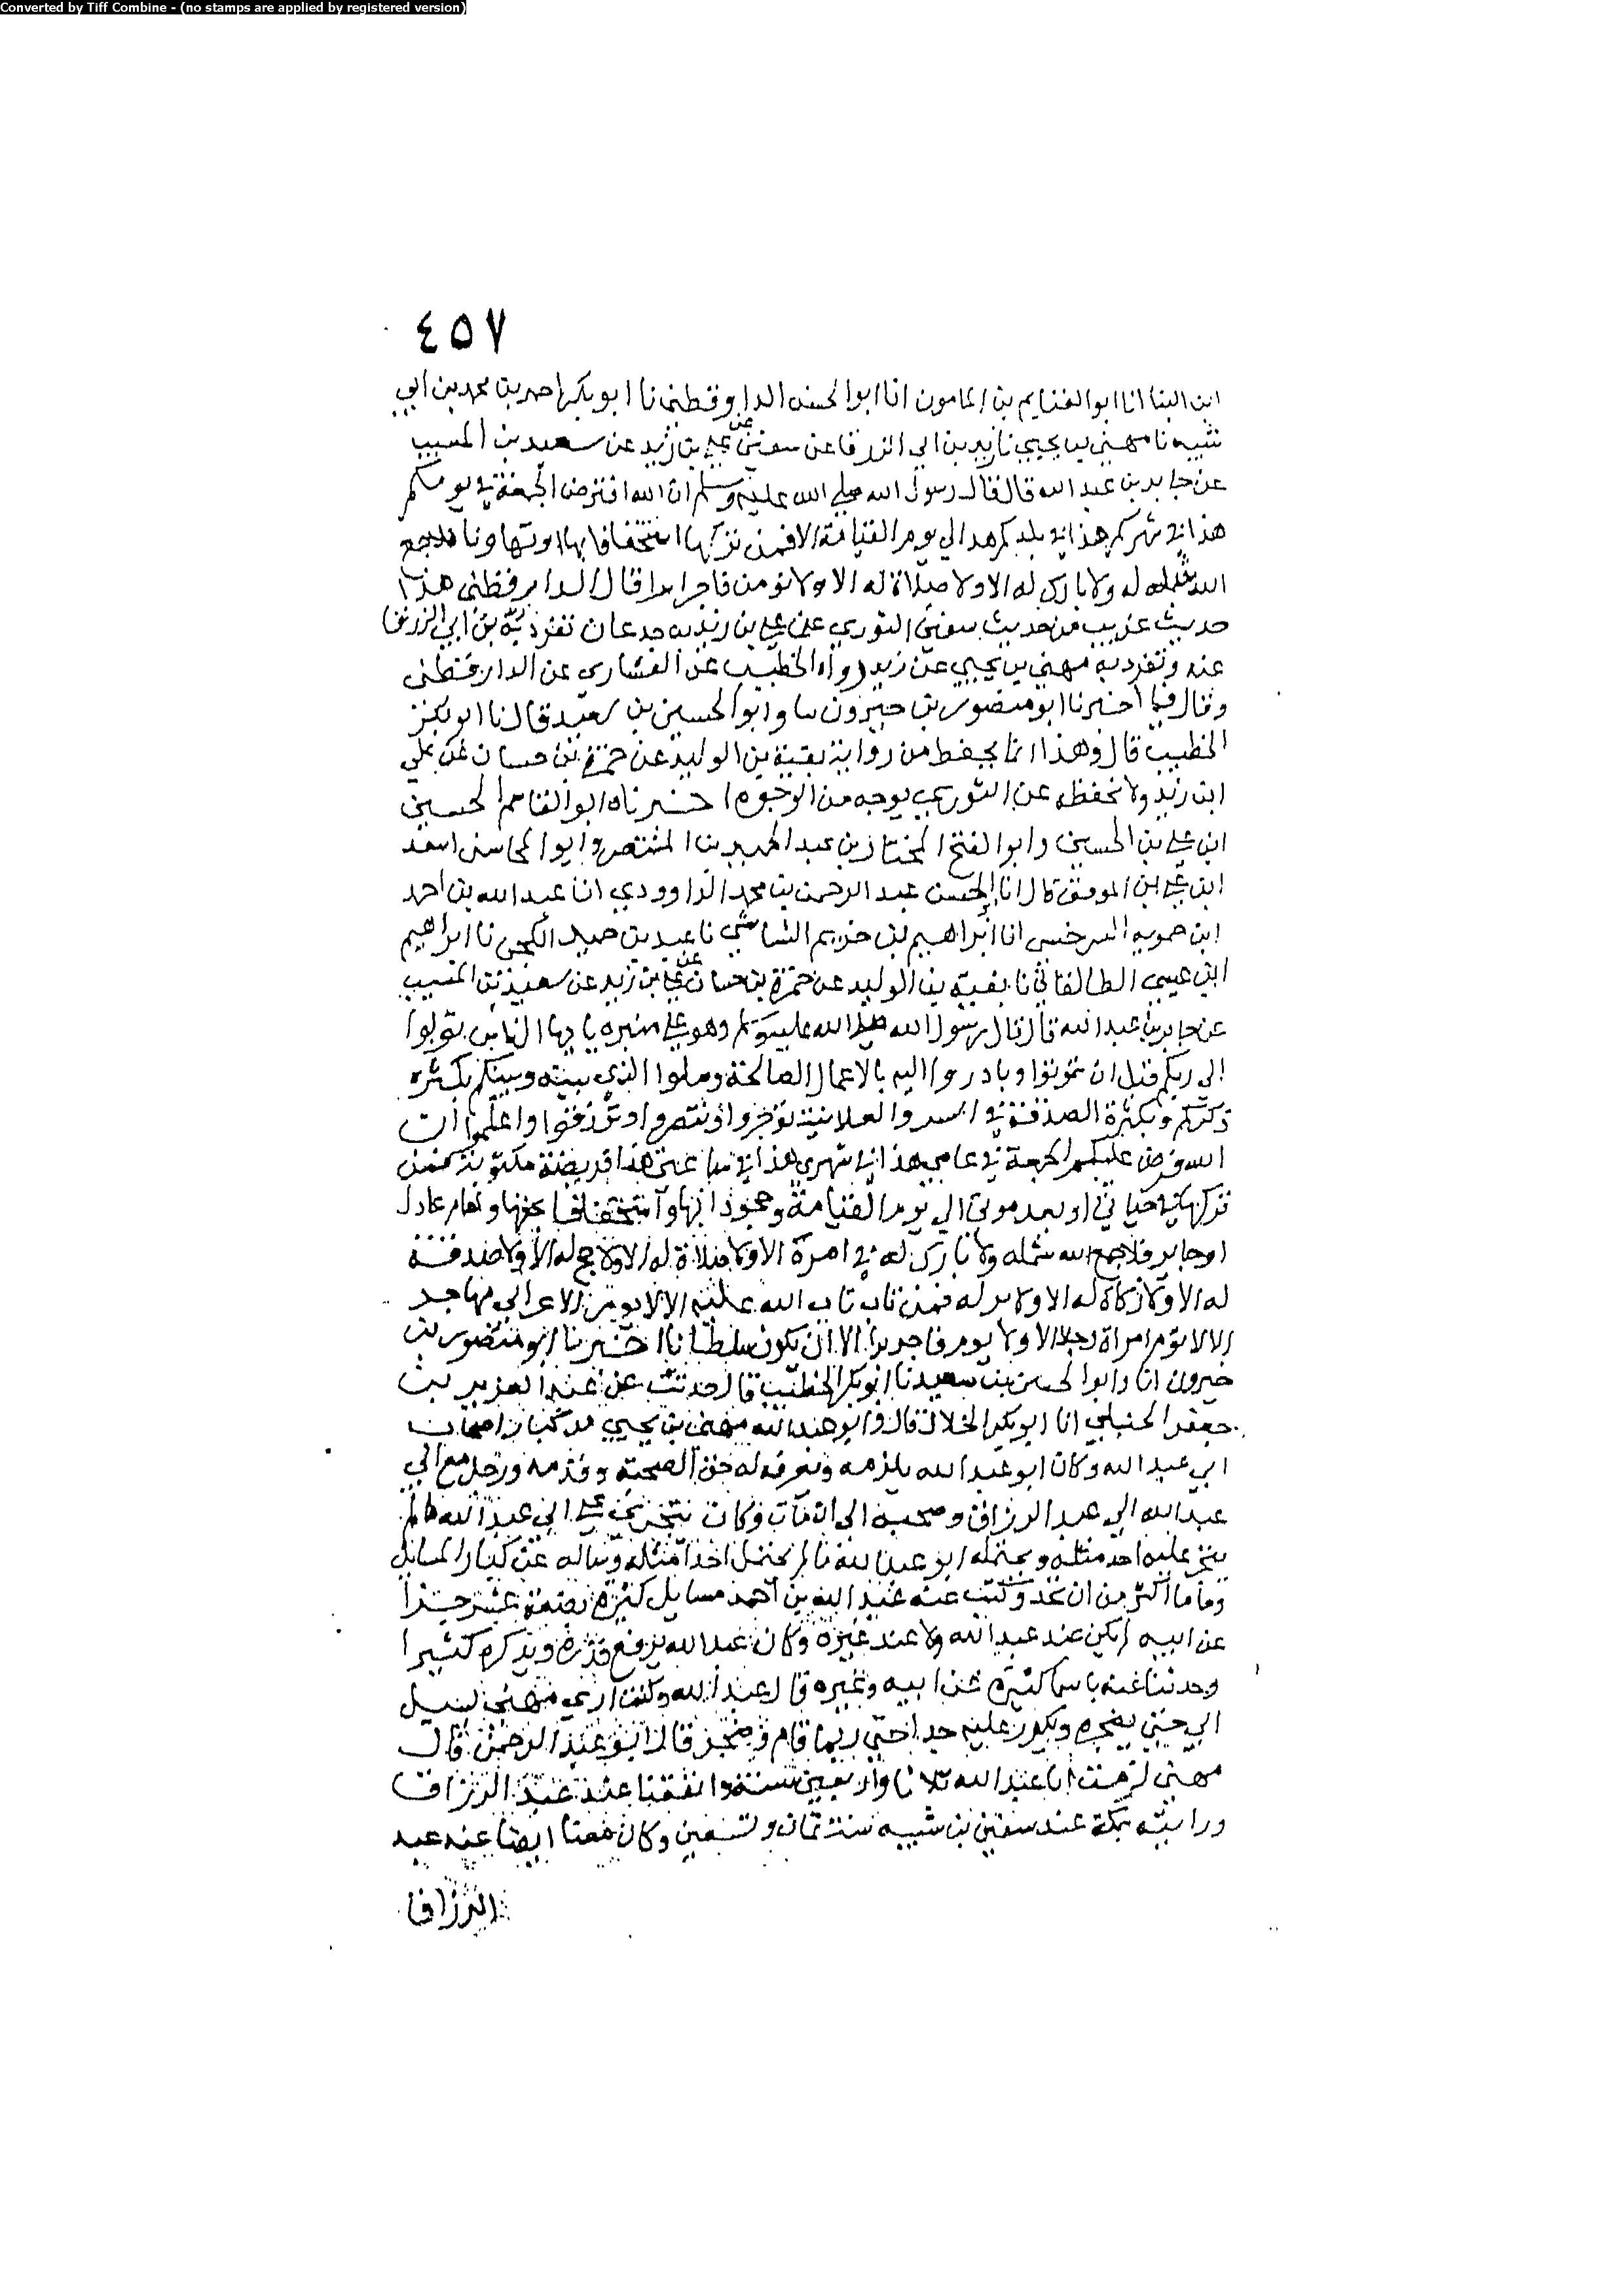 Converted by Tiff Combine - (no stamps are applied by registered version)
٤٥٧
ابن البنا انا ابو الغنايم بن المامون انا ابو الحسن الدارقطني نا ابو بكر احمد بن محمد بن ابي
شيبه نا مهنى بن يحيى نا زيد بن ابي الزرقا عن سفين عن علي بن زيد عن سعيد بن المسيب
عن جابر بن عبد الله قال قال رسول الله صلى الله عليه وسلم ان الله افترض الجمعة في يومكم
هذا في شهركم هذا في بلدكم هذا الى يوم القيامة الا فمن تركها استخفافا بها او تهاونا فلا جمع
الله شمله له ولا بارك له الا ولا صلاة له الا ولا من فاجرا برا قال الدارقطني هذا
حديث غريب من حديث سفين الثوري عن علي بن زيد بن جدعان تفرد به بن ابي الزرقا
عنه وتفرد به مهنى بن يحيى عن زيد رواه الخطيب عن العشاري عن الدارقطني
وقال فيما اخبرنا ابو منصور بن خيرون نا وابو الحسين بن سعيد قال نا ابو بكر
الخطيب قال وهذا انما يحفظ من رواية بقية بن الوليد عن حمزة بن حسان عن علي
ابن زيد ولا نحفظه عن الثوري بوجه من الوجوه اخبرناه ابو القاسم الحسين
ابن علي بن الحسين وابو الفتح المختار بن عبد الحميد بن المنتصر وابو المحاسن اسعد
ابن علي بن الموفق قال انا ابو الحسن عبد الرحمن بن محمد الداوودي انا عبد الله بن احمد
ابن حمويه السرخسي انا ابراهيم بن خزيم الشاشي نا عبد بن حميد الكجي نا ابراهيم
ابن عيسى الطالقاني نا بقية بن الوليد عن حمزة بن حسان عن علي بن زيد عن سعيد بن المسيب
عن جابر بن عبد الله قال قال رسول الله صلى الله عليه وسلم وهو على منبره يا ايها الناس توبوا
الى ربكم قبل ان تموتوا وبادروا اليه بالاعمال الصالحة وصلوا الذي بينه وبينكم بكثرة
ذكركم وبكثرة الصدقة في السر والعلانية توجروا وتنصروا وترزقوا واعلموا ان
الله فرض عليكم الجمعة في عامي هذا في شهري هذا في ساعتي هذا فريضة مكتوبة فمن
تركها في حياتي او بعد موتي الى يوم القيامة وجحودا بها واستخفافا بحقها وله امام عادل
او جاير فلا جمع الله شمله ولا بارك له في امره الا ولا صلاة له الا ولا حج له الا ولا صدقة
له الا ولا زكاة له الا ولا بر له فمن تاب تاب الله عليه الا لا يومن الاعرابي مهاجر
الا لا توم امراة رجلا الا ولا يوم فاجر برا الا ان يكون سلطانا اخبرنا ابو منصور بن
خيرون انا وابو الحسن بن سعيد نا ابو بكر الخطيب قال حدثت عن عبد العزيز بن
جعفر الحنبلي انا ابو بكر الخلال قال وابو عبد الله مهنى بن يحيى من كبار اصحاب
ابي عبد الله وكان ابو عبد الله يكرمه ويعرف له حق الصحبة وقدمه ورحل مع ابي
عبد الله الى عبد الرزاق وصحبه الى ان مات وكان يتجرى على ابي عبد الله ما لم
يتجر عليه احد مثله ويحتمله ابو عبد الله ما لم يحتمل احدا مثله وساله عن كبار المسايل
ومسايله اكثر من ان تحد وكتب عنه عبد الله بن احمد مسايل كثيرة بضعة عشر جزا
عن ابيه لم تكن عند عبد الله ولا عند غيره وكان عبد الله يرفع قدره ويذكره كثيرا
وحدثنا عنه باشيا كثيرة عن ابيه وغيره قال عبد الله وكنت ارى مهنى يسيل
ابي حتى يضجره ويكرر عليه جدا حتى ربما قام وضجر قال ابو عبد الرحمن قال
مهنى لزمت ابا عبد الله ثلاثا واربعين سنة واتفقنا عند عبد الرزاق
ورايته بمكة عند سفين بن عيينه سنة ثمان وتسعين وكان معنا ايضا عند عبد
الرزاق